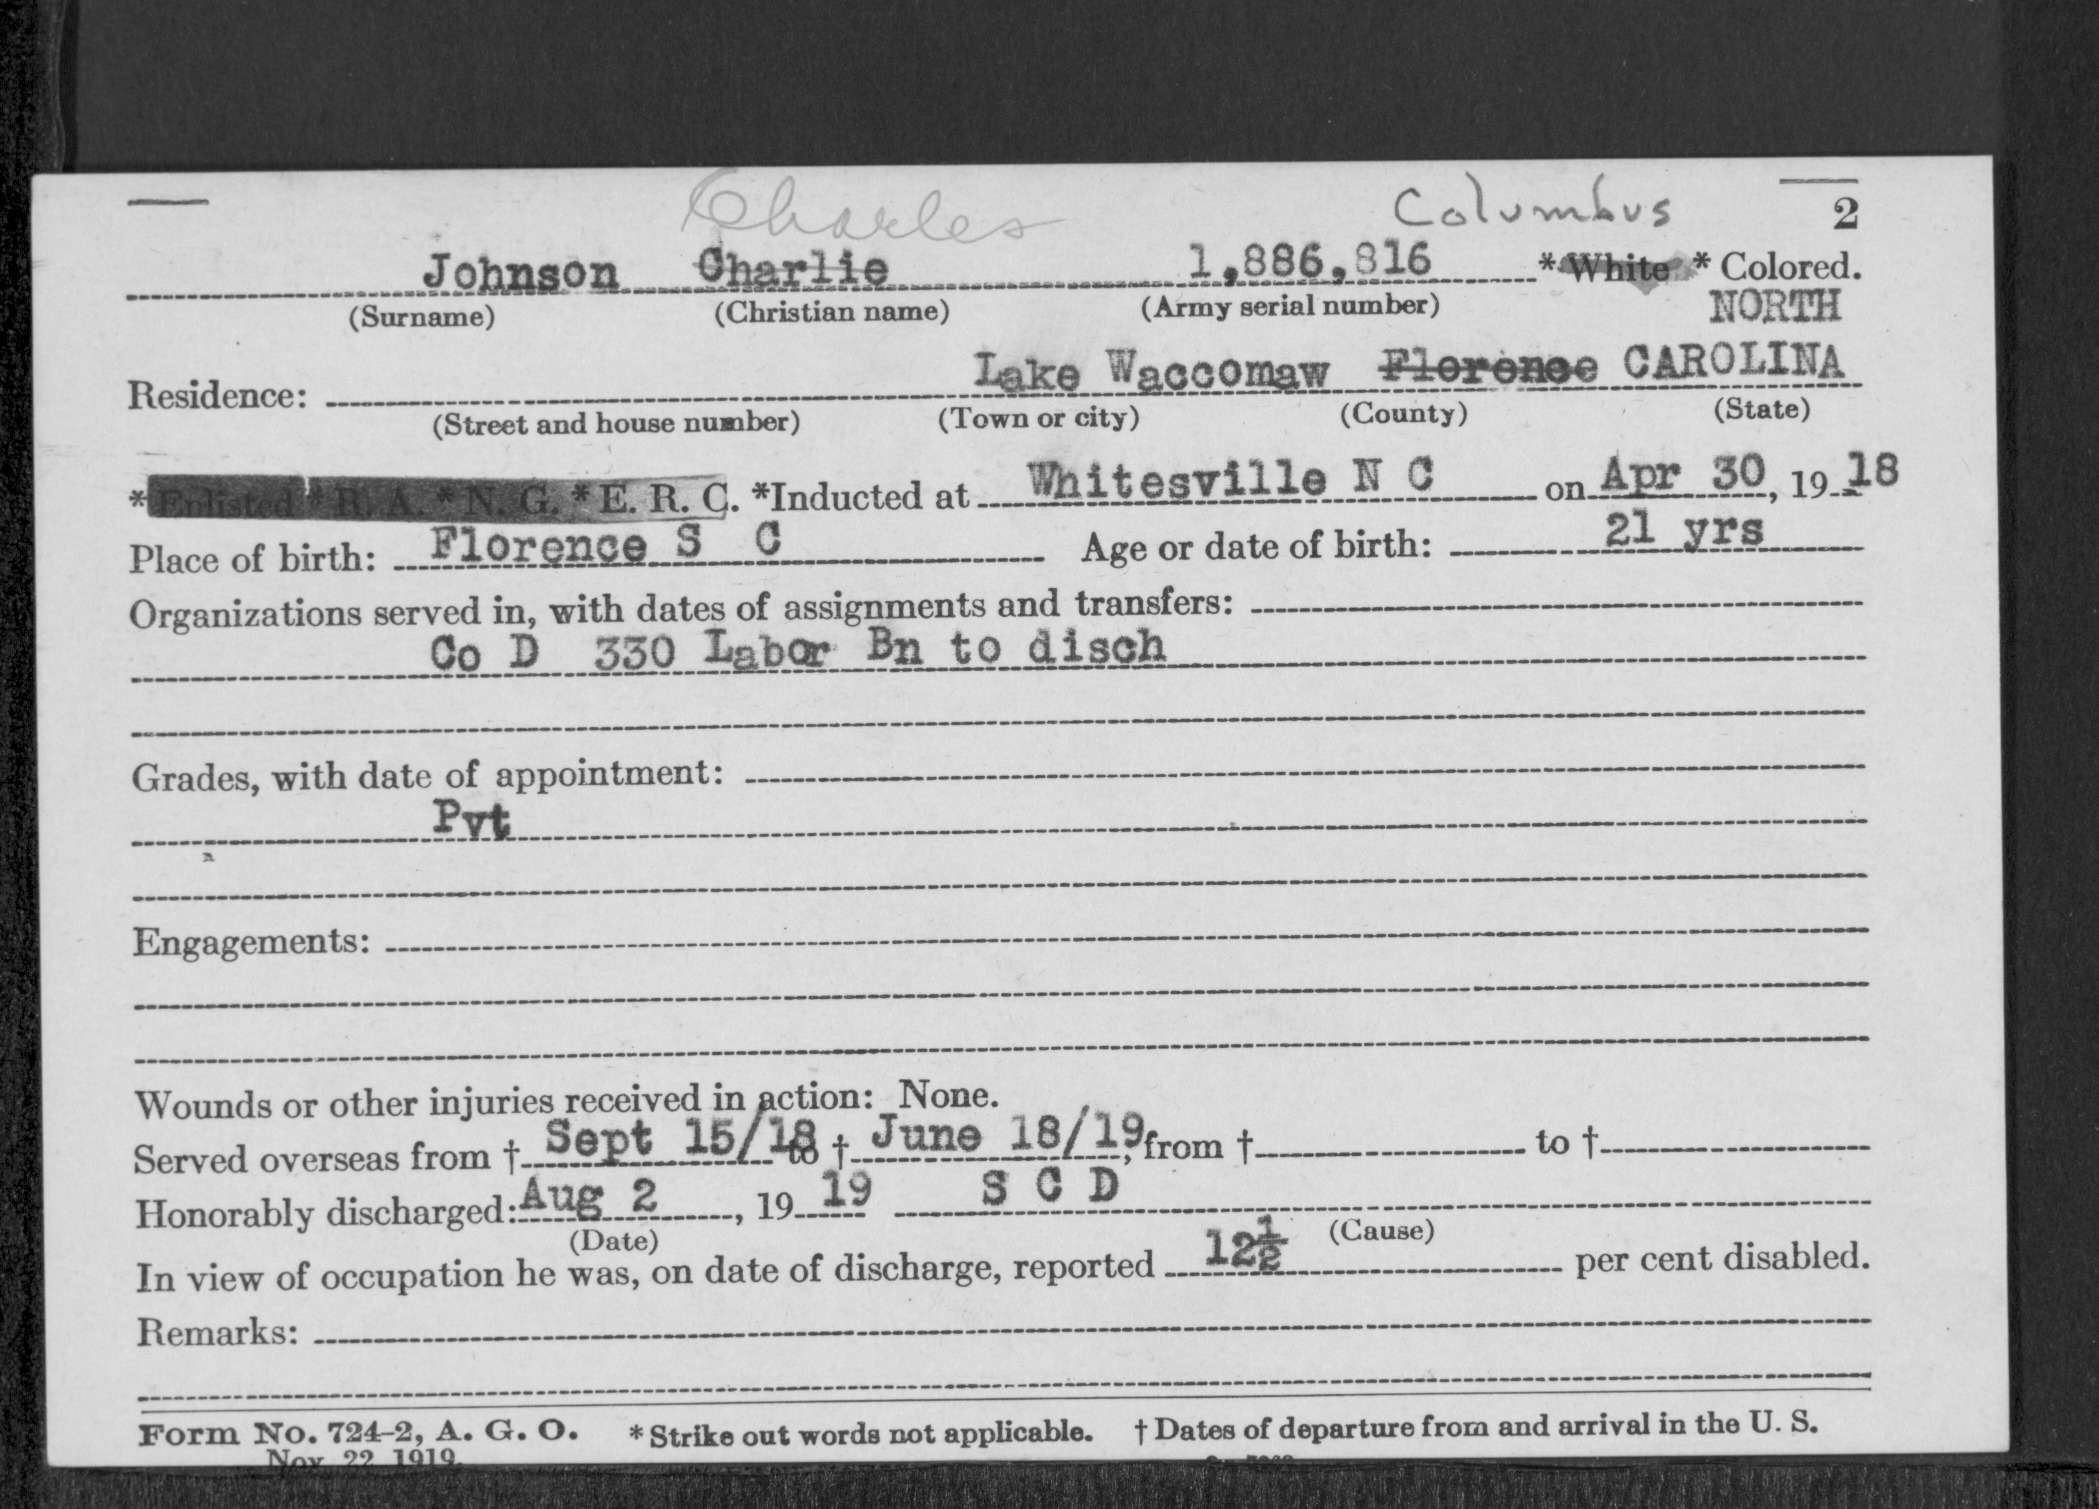 Charles Columbus 2
Johnson Charlie 1,886,816 *White *Colored.
(Surname) (Christian name) (Army serial number) NORTH
Residence: Lake Waccomaw Florence CAROLINA
(Street and house number) (Town or city) (County) (State)
*Enlisted *R. A. *N. G. *E. R. C. *Inducted at Whitesville N C on Apr 30, 19 18
Place of birth: Florence S C Age or date of birth: 21 yrs
Organizations served in, with dates of assignments and transfers:
Co D 330 Labor Bn to disch
Grades, with date of appointment:
Pvt
Engagements:
Wounds or other injuries received in action: None.
Served overseas from † Sept 15/18 to † June 18/19, from † to †
Honorably discharged: Aug 2, 19 19 S C D
(Date) (Cause)
In view of occupation he was, on date of discharge, reported 12½ per cent disabled.
Remarks:
Form No. 724-2, A. G. O. *Strike out words not applicable. †Dates of departure from and arrival in the U. S.
Nov. 22, 1919.